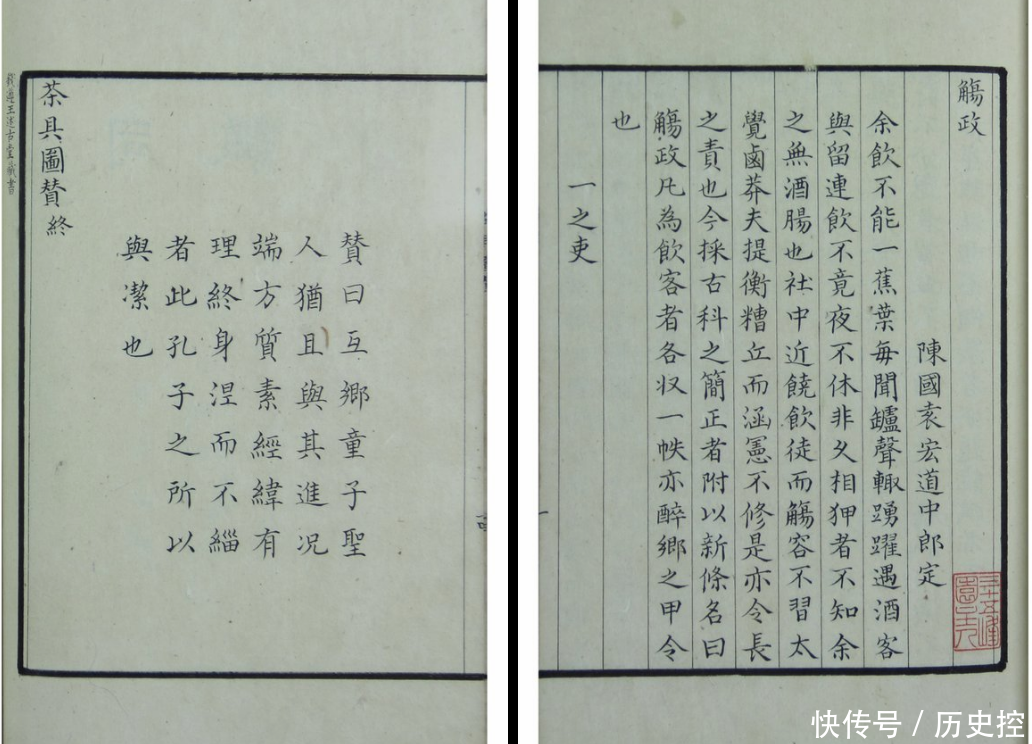 觴政
陳國袁宏道中郎定
余飲不能一蕉葉每聞鑪聲輙踴躍遇酒客
與留連飲不竟夜不休非久相狎者不知余
之無酒腸也社中近饒飲徒而觴容不習太
覺鹵莽夫提衡糟丘而涵憲不修是亦令長
之責也今採古科之簡正者附以新條名曰
觴政凡為飲客者各収一帙亦醉鄉之甲令
也
一之吏
贊曰互鄉童子聖
人猶且與其進况
端方質素經緯有
理終身涅而不緇
者此孔子之所以
與潔也
茶具圖贊終
快传号 / 历史控